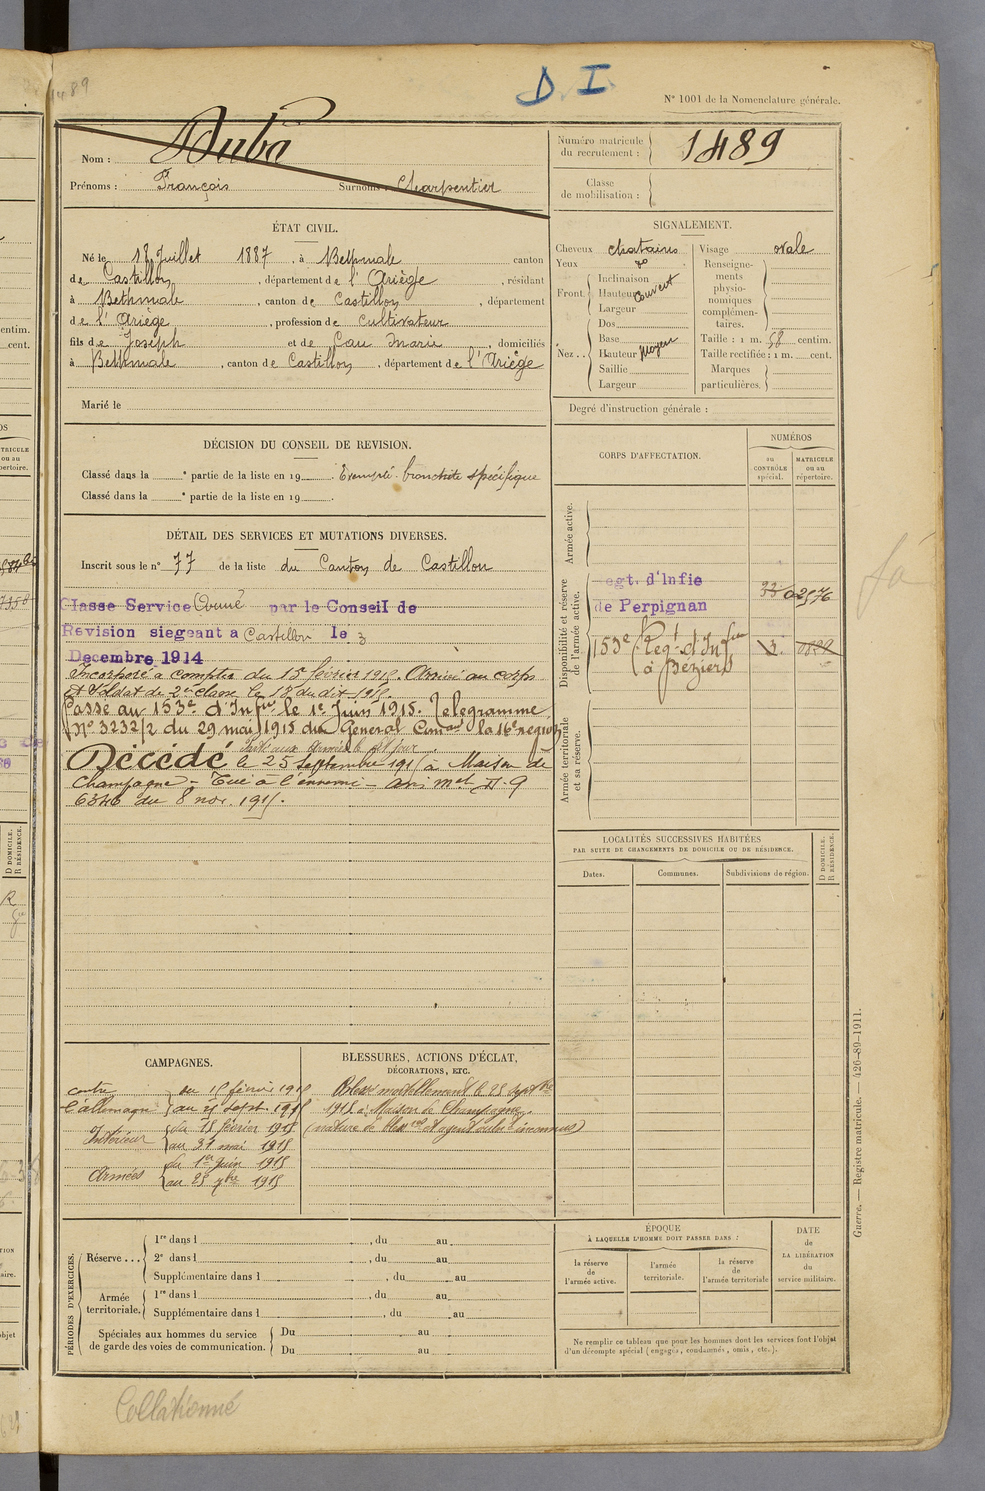 D. I.
N° 1001 de la Nomenclature générale.
1489
Nom : Duba
Prénoms : François Surnoms : Charpentier
Numéro matricule du recrutement : 1489
Classe de mobilisation :
ÉTAT CIVIL.
Né le 18 Juillet 1887, à Bethmale canton
de Castillon, département de l'Ariège, résidant
à Bethmale, canton de Castillon, département
de l'Ariège, profession de Cultivateur
fils de Joseph et de Cau Marie, domiciliés
à Bethmale, canton de Castillon, département de l'Ariège
Marié le
SIGNALEMENT.
Cheveux chatains Visage ovale
Yeux do
Front. Inclinaison
Hauteur couvert
Largeur
Nez .. Dos
Base
Hauteur Moyen
Saillie
Largeur
Renseignements physionomiques complémentaires.
Taille : 1 m. 58 centim.
Taille rectifiée : 1 m. cent.
Marques particulières.
Degré d'instruction générale :
DÉCISION DU CONSEIL DE REVISION.
Classé dans la e partie de la liste en 19 . Exempté bronchite spécifique
Classé dans la e partie de la liste en 19 .
DÉTAIL DES SERVICES ET MUTATIONS DIVERSES.
Inscrit sous le n° 77 de la liste du Canton de Castillon
Classe Service Armé par le Conseil de
Revision siegeant a Castillon le 3
Decembre 1914
Incorporé à compter du 15 février 1915. Arrivé au corps
et Soldat de 2e classe le 18 du dit 1915.
Passé au 153e d'Infie le 1er Juin 1915. Telegramme
N° 3232/2 du 29 mai 1915 du Général Cmant la 16e région
Parti aux Armées le dit jour.
Décédé le 25 Septembre 1915 à Maison de
Champagne - Tué à l'ennemi - avis mel
6346 du 8 nov. 1915.
CORPS D'AFFECTATION.
NUMÉROS
au CONTRÔLE spécial.
MATRICULE ou au répertoire.
Armée active.
Disponibilité et réserve de l'armée active.
egt. d'Infie
de Perpignan
02576
153e Regt d'Infie
à Béziers
Armée territoriale et sa réserve.
LOCALITÉS SUCCESSIVES HABITÉES
PAR SUITE DE CHANGEMENTS DE DOMICILE OU DE RÉSIDENCE.
Dates. Communes. Subdivisions de région.
D DOMICILE.
R RÉSIDENCE.
CAMPAGNES.
contre l'allemagne du 15 février 1915
au 25 sept 1915
Intérieur du 15 février 1915
au 31 mai 1915
Armées du 1er Juin 1915
au 25 7bre 1915
BLESSURES, ACTIONS D'ÉCLAT,
DÉCORATIONS, ETC.
Blessé mortellement le 25 Septbre
1915 à Maison de Champagne.
(nature de blessres et agent inconnus)
PÉRIODES D'EXERCICES.
Réserve ... 1re dans l , du au
2e dans l , du au
Supplémentaire dans l , du au
Armée territoriale. 1re dans l , du au
Supplémentaire dans l , du au
Spéciales aux hommes du service
de garde des voies de communication. Du au
Du au
ÉPOQUE
À LAQUELLE L'HOMME DOIT PASSER DANS :
la réserve de l'armée active.
l'armée territoriale.
la réserve de l'armée territoriale
DATE de LA LIBÉRATION du service militaire.
Ne remplir ce tableau que pour les hommes dont les services font l'objet
d'un décompte spécial (engagés, condamnés, omis, etc.).
Guerre. — Registre matricule. — 426-89-1911.
Collationné